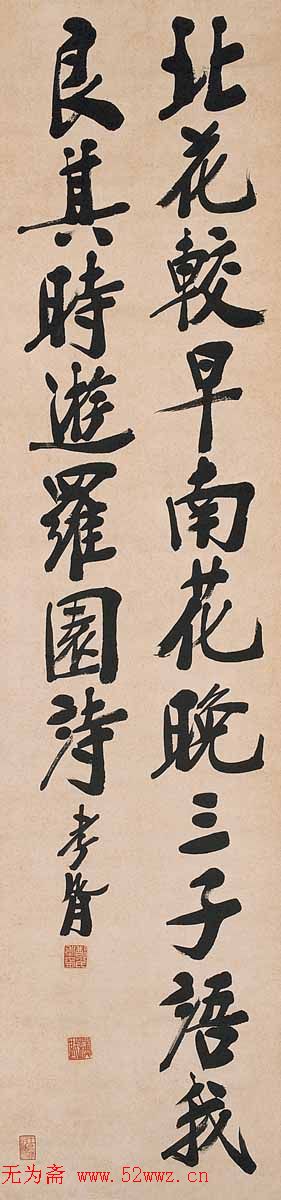 北花較早南花晚三子語我
良其時遊羅園詩 孝胥
无为斋 www.52wwz.cn